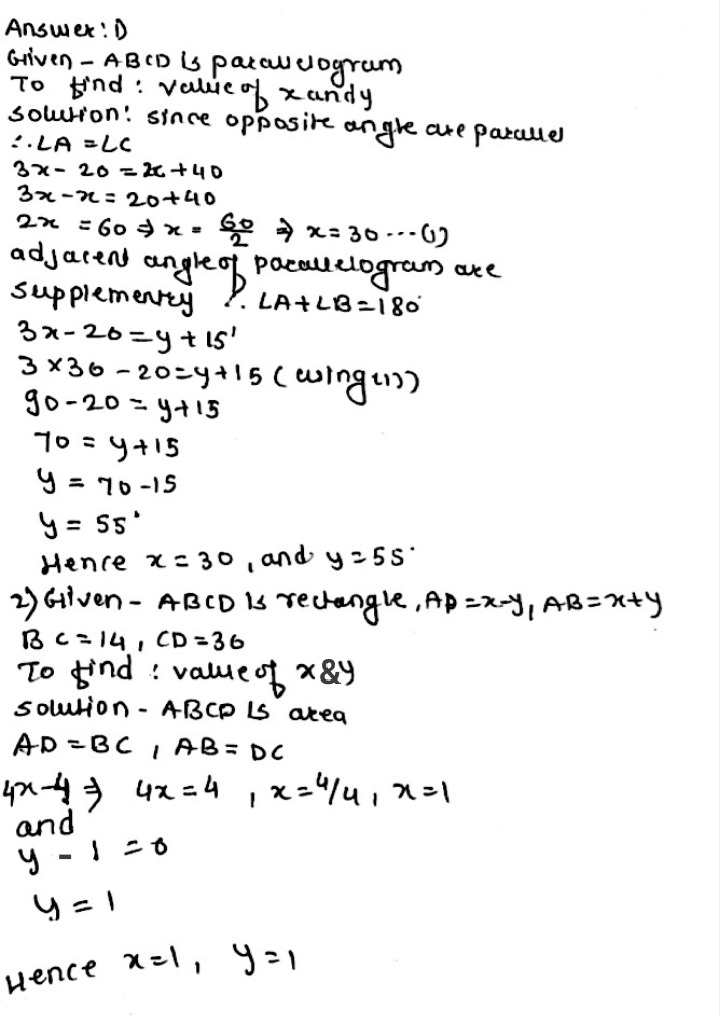 Answer: 1)
Given - ABCD is parallelogram
To find : value of x and y
solution: since opposite angle are parallel
∴ LA = LC
3x - 20 = x + 40
3x - x = 20 + 40
2x = 60 ⇒ x = 60/2 ⇒ x = 30 ... (1)
adjacent angle of parallelogram are
supplementry ∴ LA + LB = 180°
3x - 20 = y + 15'
3 × 30 - 20 = y + 15 (using (1))
90 - 20 = y + 15
70 = y + 15
y = 70 - 15
y = 55°
Hence x = 30, and y = 55°
2) Given - ABCD is rectangle, AD = x-y, AB = x+y
BC = 14, CD = 36
To find : value of x & y
solution - ABCD is area
AD = BC, AB = DC
4x - 4 ⇒ 4x = 4, x = 4/4, x = 1
and
y - 1 = 0
y = 1
Hence x = 1, y = 1